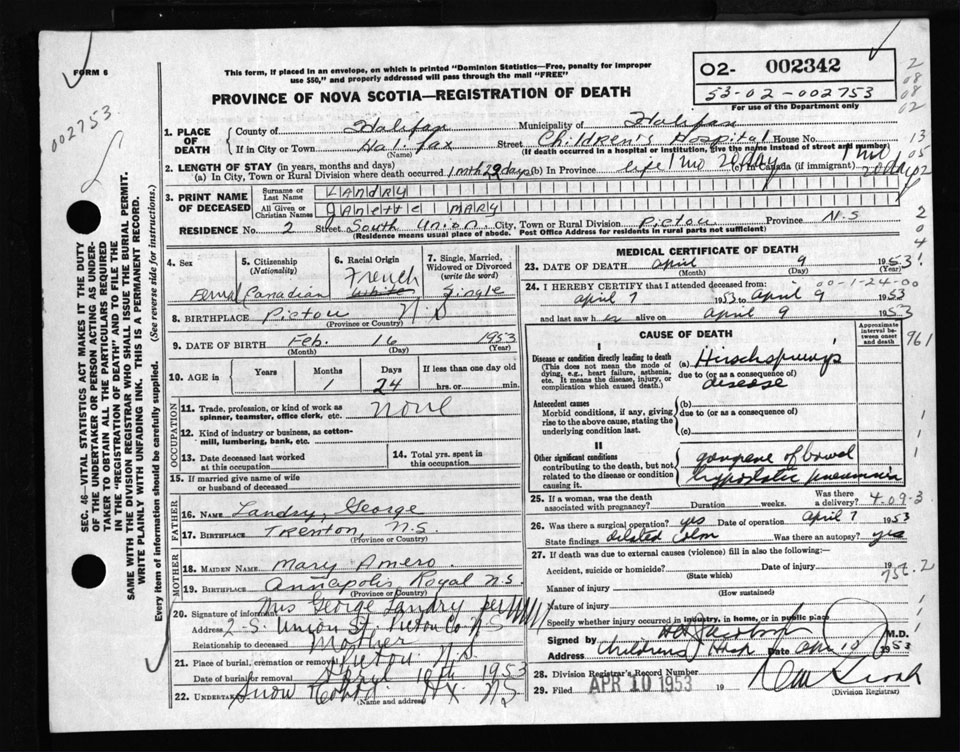 FORM 6
This form, if placed in an envelope, on which is printed "Dominion Statistics—Free, penalty for improper
use $50," and properly addressed will pass through the mail "FREE"
02- 002342
53-02-002753
For use of the Department only
PROVINCE OF NOVA SCOTIA—REGISTRATION OF DEATH
002753
2
08
08
02
13
05
2
2
0
4
1
961
1
1
1. PLACE OF DEATH
County of Halifax Municipality of Halifax
If in City or Town Halifax Street Children's Hospital House No.
(Name) (If death occurred in a hospital or institution, give the name instead of street and number)
2. LENGTH OF STAY (in years, months and days)
(a) In City, Town or Rural Division where death occurred 1 mth 29 days (b) In Province life 1 mo 20 day (c) In Canada (if immigrant) 1 mo
20 days
3. PRINT NAME OF DECEASED
Surname or Last Name LANDRY
All Given or Christian Names JANETTE MARY
RESIDENCE No. 2 Street South Union City, Town or Rural Division Pictou Province N.S
(Residence means usual place of abode. Post Office Address for residents in rural parts not sufficient)
4. Sex
5. Citizenship (Nationality) Canadian
6. Racial Origin French White
7. Single, Married, Widowed or Divorced (write the word) Single
8. BIRTHPLACE Pictou N S
(Province or Country)
9. DATE OF BIRTH Feb. 16 1953
(Month) (Day) (Year)
10. AGE in Years Months 1 Days 24 If less than one day old hrs. or min.
OCCUPATION
11. Trade, profession, or kind of work as spinner, teamster, office clerk, etc. none
12. Kind of industry or business, as cotton-mill, lumbering, bank, etc.
13. Date deceased last worked at this occupation
14. Total yrs. spent in this occupation
15. If married give name of wife or husband of deceased
FATHER
16. Name Landry, George
17. Birthplace Trenton, N.S.
(Province or Country)
MOTHER
18. MAIDEN NAME Mary Amero.
19. BIRTHPLACE Annapolis Royal N.S.
(Province or Country)
20. Signature of informant Mrs George Landry per
Address 2-S. Union St. Pictou Co. N S
Relationship to deceased Mother
21. Place of burial, cremation or removal Pictou N.S
Date of burial or removal April 10th 1953
22. UNDERTAKER Snow HX. NS
(Name and address)
MEDICAL CERTIFICATE OF DEATH
23. DATE OF DEATH April 9 1953
(Month) (Day) (Year)
24. I HEREBY CERTIFY that I attended deceased from: 00-1-24-00
April 7 1953 to April 9 1953
and last saw her alive on April 9 1953
CAUSE OF DEATH
Approximate interval between onset and death
I
Disease or condition directly leading to death (a) Hirschsprung's
(This does not mean the mode of dying, e.g., heart failure, asthenia, etc. It means the disease, injury, or complication which caused death.)
due to (or as a consequence of)
disease
Antecedent causes (b)
Morbid conditions, if any, giving rise to the above cause, stating the underlying condition last.
due to (or as a consequence of)
(c)
II
Other significant conditions contributing to the death, but not related to the disease or condition causing it.
gangrene of bowel
hypostatic pneumonia
25. If a woman, was the death associated with pregnancy? Duration weeks. Was there a delivery? 4-09-3
26. Was there a surgical operation? yes Date of operation April 7 1953
State findings dilated Colon Was there an autopsy? yes
27. If death was due to external causes (violence) fill in also the following:—
Accident, suicide or homicide? Date 19
(State which)
756.2
Manner of injury
(How sustained)
Nature of injury
Specify whether injury occurred in industry, in home, or in public place
Signed by M.D.
Address Childrens Hosp Date Apr 10 1953
28. Division Registrar's Record Number
29. Filed APR 10 1953 19
(Division Registrar)
SEC. 46—VITAL STATISTICS ACT MAKES IT THE DUTY
OF THE UNDERTAKER OR PERSON ACTING AS UNDERTAKER TO OBTAIN ALL THE PARTICULARS REQUIRED
IN THE "REGISTRATION OF DEATH" AND TO FILE THE
SAME WITH THE DIVISION REGISTRAR WHO SHALL ISSUE THE BURIAL PERMIT.
WRITE PLAINLY WITH UNFADING INK. THIS IS A PERMANENT RECORD.
Every item of information should be carefully supplied. (See reverse side for instructions.)